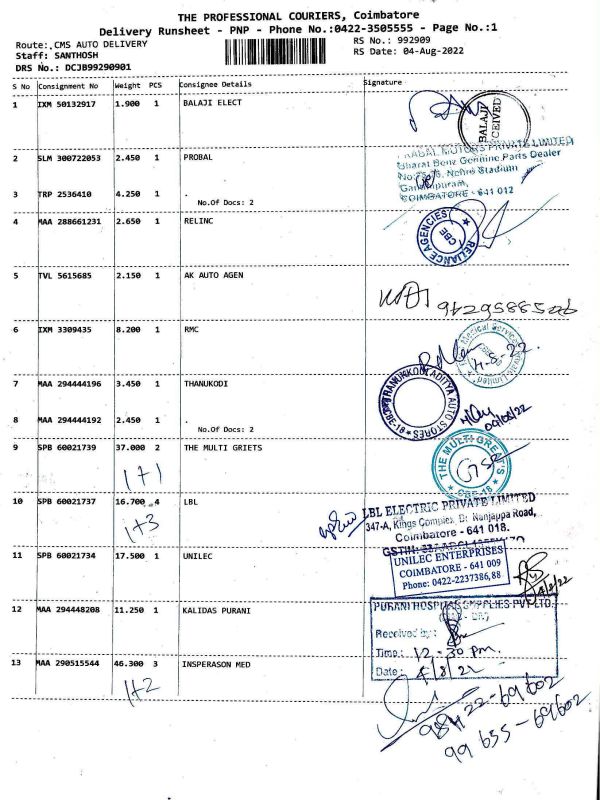 THE PROFESSIONAL COURIERS, Coimbatore
Delivery Runsheet - PNP - Phone No.:0422-3505555 - Page No.:1
Route: CMS AUTO DELIVERY
RS No.: 992909
Staff: SANTHOSH
RS Date: 04-Aug-2022
DRS No.: DCJB99290901
S No Consignment No Weight PCS Consignee Details Signature
1 IXM 50132917 1.900 1 BALAJI ELECT
BALAJI
2 SLM 300722053 2.450 1 PROBAL
MOTORS PRIVATE LIMITED
Bharat Benz Genuine Parts Dealer
Nehru Stadium
Gandhipuram,
COIMBATORE - 641 012
3 TRP 2536410 4.250 1 .
No.Of Docs: 2
4 MAA 288661231 2.650 1 RELINC
RELIANCE AGENCIES
CBE
5 TVL 5615685 2.150 1 AK AUTO AGEN
6 IXM 3309435 8.200 1 RMC
Medical Services Private Limited
4-8-22.
7 MAA 294444196 3.450 1 THANUKODI
ADITYA AUTO STORES
CBE-18
8 MAA 294444192 2.450 1 .
No.Of Docs: 2
9 SPB 60021739 37.000 2 THE MULTI GRIETS
1+1
THE MULTI GREAT'S
CBE-18
10 SPB 60021737 16.700 4 LBL
1+3
LBL ELECTRIC PRIVATE LIMITED
347-A, Kings Complex, Dr. Nanjappa Road,
Coimbatore - 641 018.
11 SPB 60021734 17.500 1 UNILEC
UNILEC ENTERPRISES
COIMBATORE - 641 009
Phone: 0422-2237386,88
12 MAA 294448208 11.250 1 KALIDAS PURANI
PURANI HOSPITAL SUPPLIES PVT LTD.
Received by :
Time : 12-30 pm.
Date : 4/8/22
13 MAA 290515544 46.300 3 INSPERASON MED
1+2
98422-69602
99655-69602